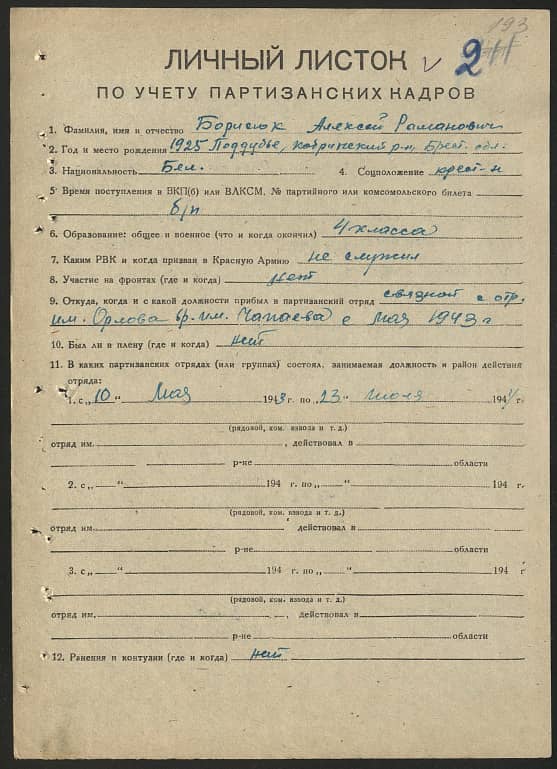 193
ЛИЧНЫЙ ЛИСТОК
2
ПО УЧЕТУ ПАРТИЗАНСКИХ КАДРОВ
1. Фамилия, имя и отчество Борисюк Алексей Раманович
2. Год и место рождения 1925 Поддубье, Кобринский р-н, Брест. обл.
3. Национальность Бел. 4. Соцположение крест-н
5 Время поступления в ВКП(б) или ВЛКСМ, № партийного или комсомольского билета
б/п
6. Образование: общее и военное (что и когда окончил) 4 класса
7. Каким РВК и когда призван в Красную Армию не служил
8. Участие на фронтах (где и когда) нет
9. Откуда, когда и с какой должности прибыл в партизанский отряд связной с отр.
им. Орлова бр. им. Чапаева с мая 1943 г
10. Был ли в плену (где и когда) нет
11. В каких партизанских отрядах (или группах) состоял, занимаемая должность и район действия
отряда:
1. с „10" мая 1943 г. по „23" июля 1944 г.
(рядовой, ком. взвода и т. д.)
отряд им. , действовал в
р-не области
2. с „ " 194 г. по „ " 194 г
(рядовой, ком. взвода и т. д.)
отряд им. , действовал в
р-не области
3. с „ " 194 г. по „ " 194 г
(рядовой, ком. взвода и т. д.)
отряд им. , действовал в
р-не области
12. Ранения и контузии (где и когда) нет